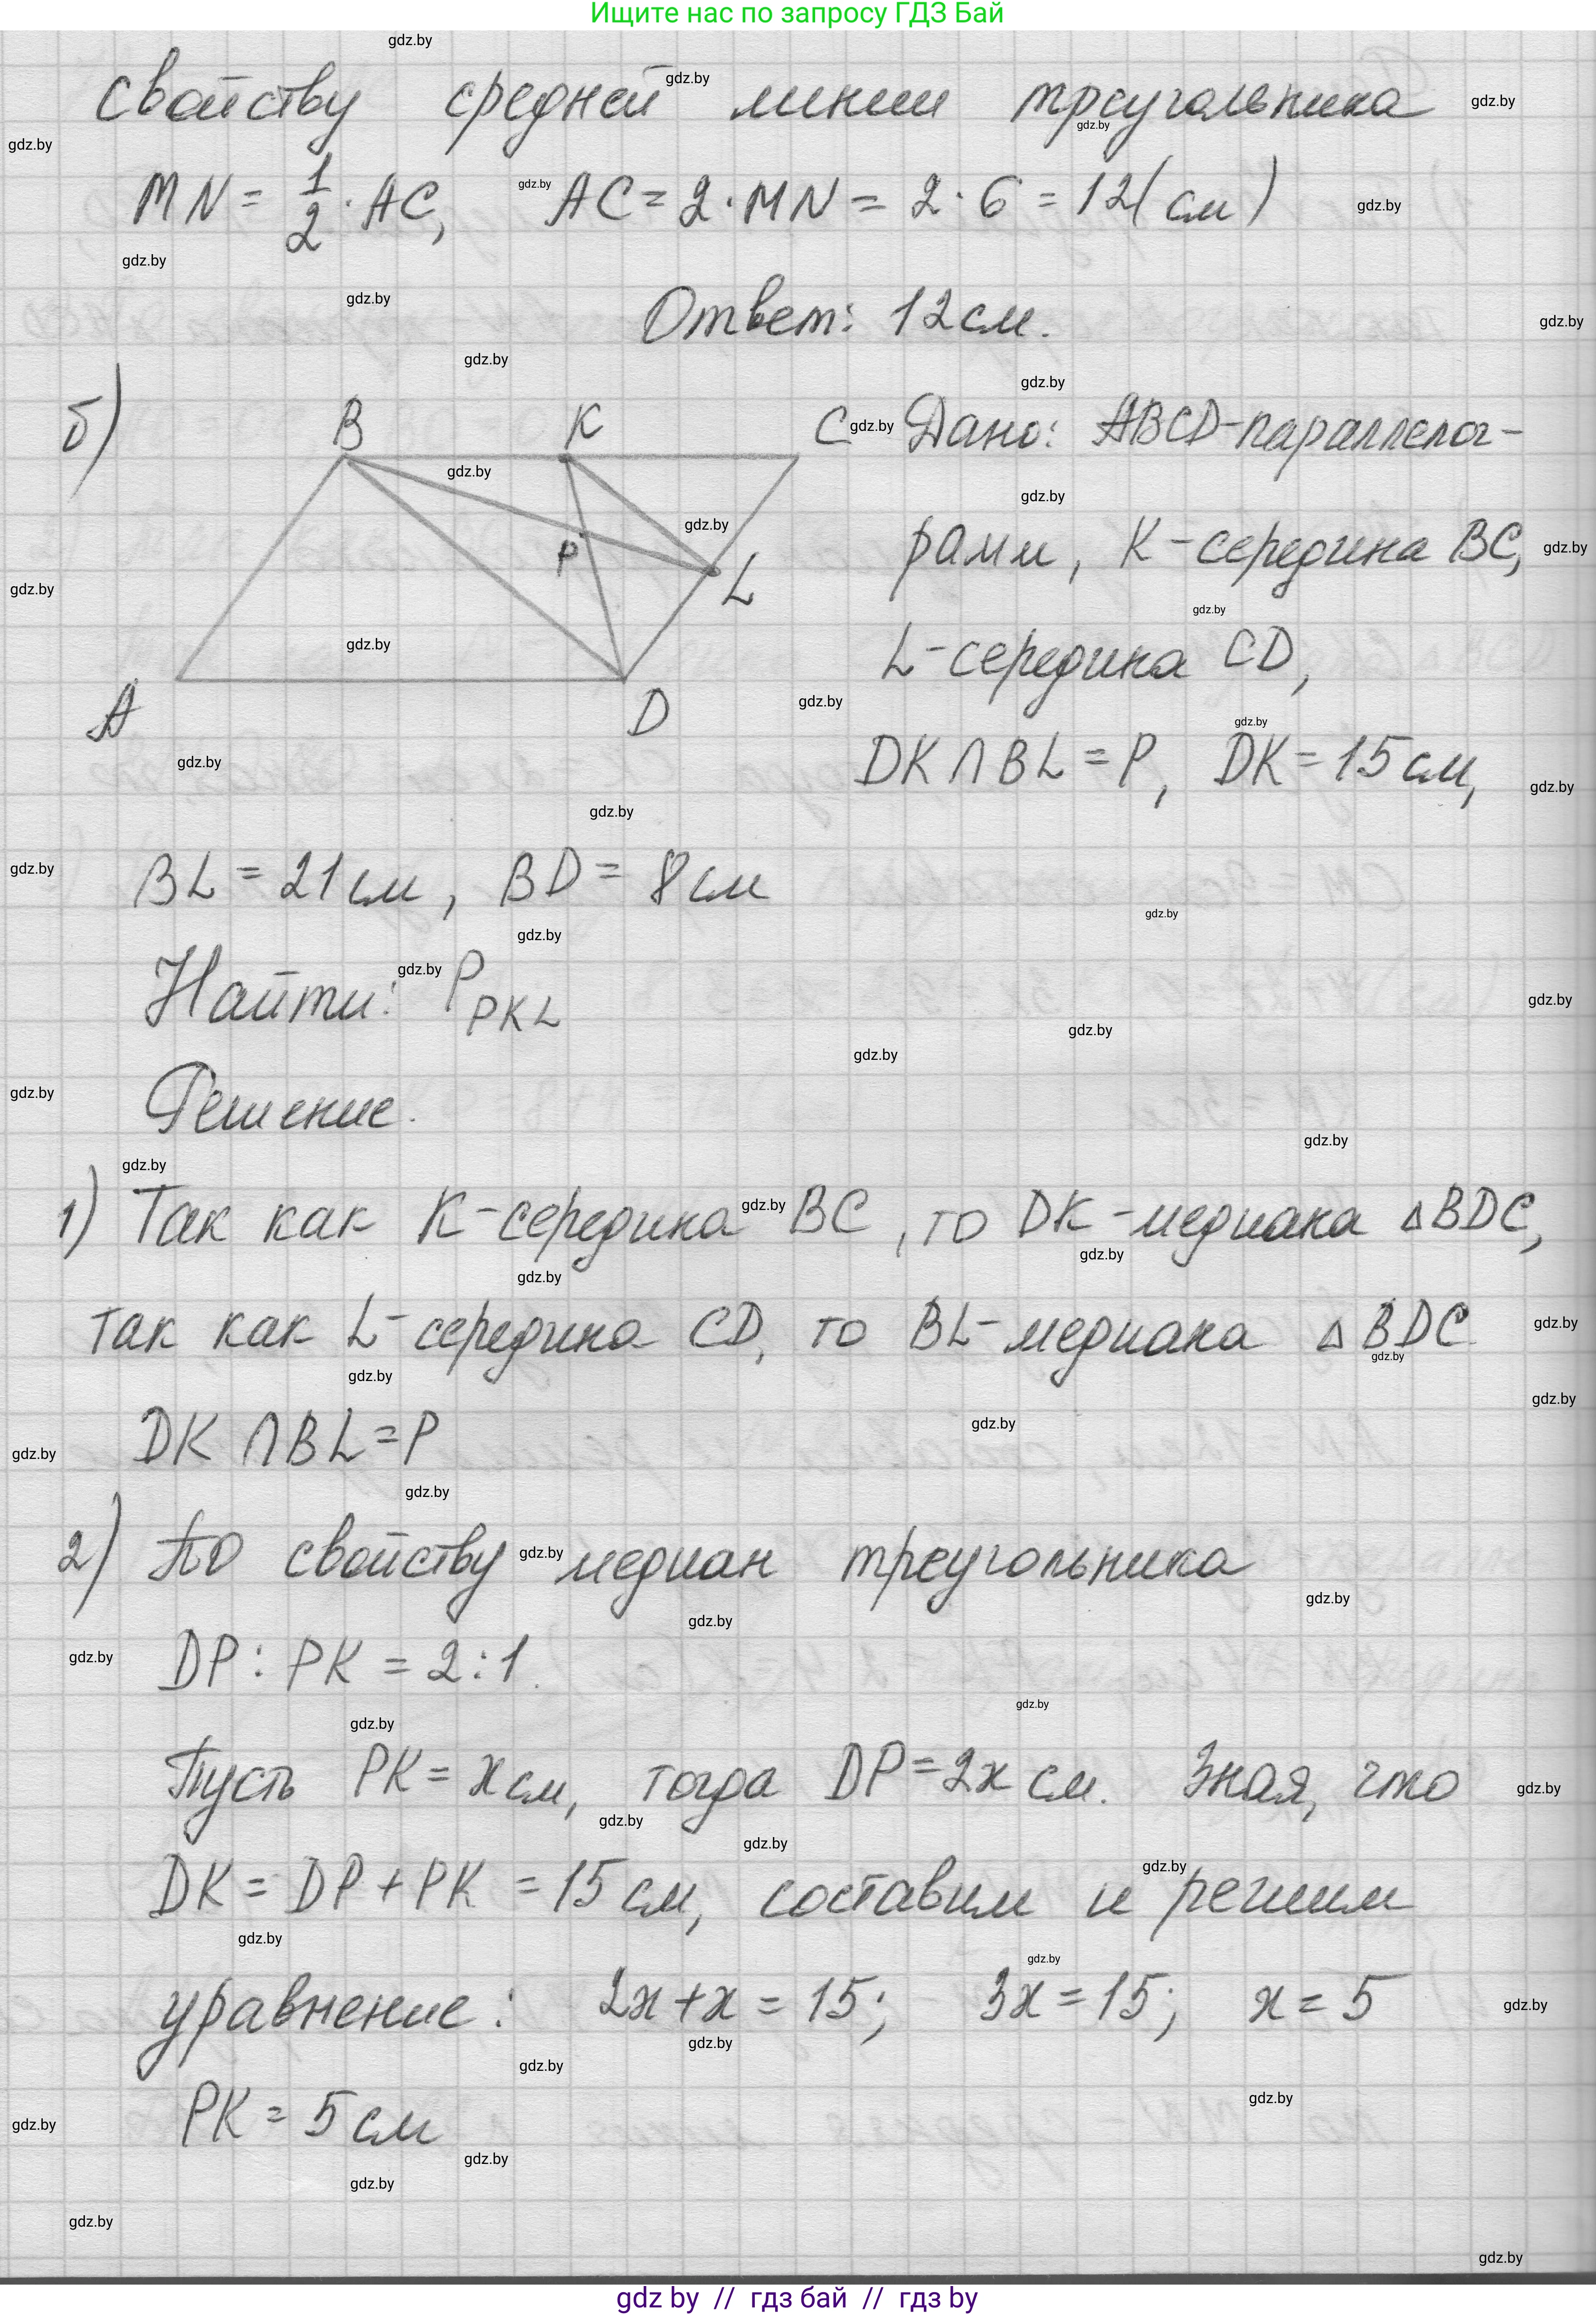 Ищите нас по запросу ГДЗ Бай
свойству средней линии треугольника
MN = 1/2 · AC, AC = 2 · MN = 2 · 6 = 12 (см)
Ответ: 12 см.
б)
B K C
P L
A D
Дано: ABCD-параллелог-
рамм, K-середина BC,
L-середина CD,
DK ∩ BL = P, DK = 15 см,
BL = 21 см, BD = 8 см
Найти: P PKL
Решение.
1) Так как K-середина BC, то DK-медиана △BDC,
так как L-середина CD, то BL-медиана △BDC
DK ∩ BL = P
2) По свойству медиан треугольника
DP : PK = 2 : 1.
Пусть PK = x см, тогда DP = 2x см. Зная, что
DK = DP + PK = 15 см, составим и решим
уравнение: 2x + x = 15; 3x = 15; x = 5
PK = 5 см
gdz.by
gdz by // гдз бай // гдз by